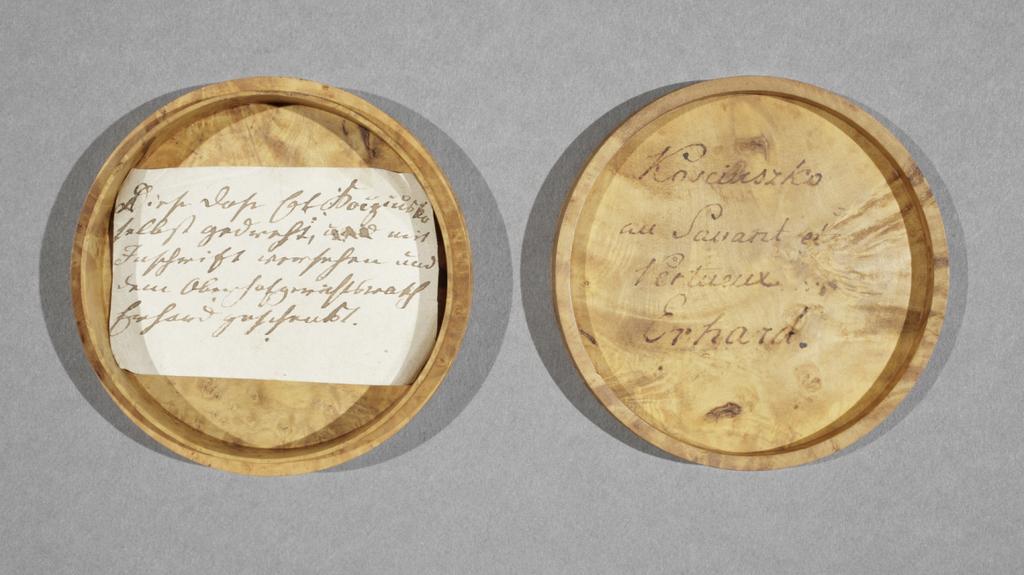 Diese Dose hat Kosziusko
selbst gedreht, und mit
Inschrift versehen und
dem Oberhofgerichtsrath
Erhard geschenkt.
Kosciuszko
au Savant et
Vertueux
Erhard.